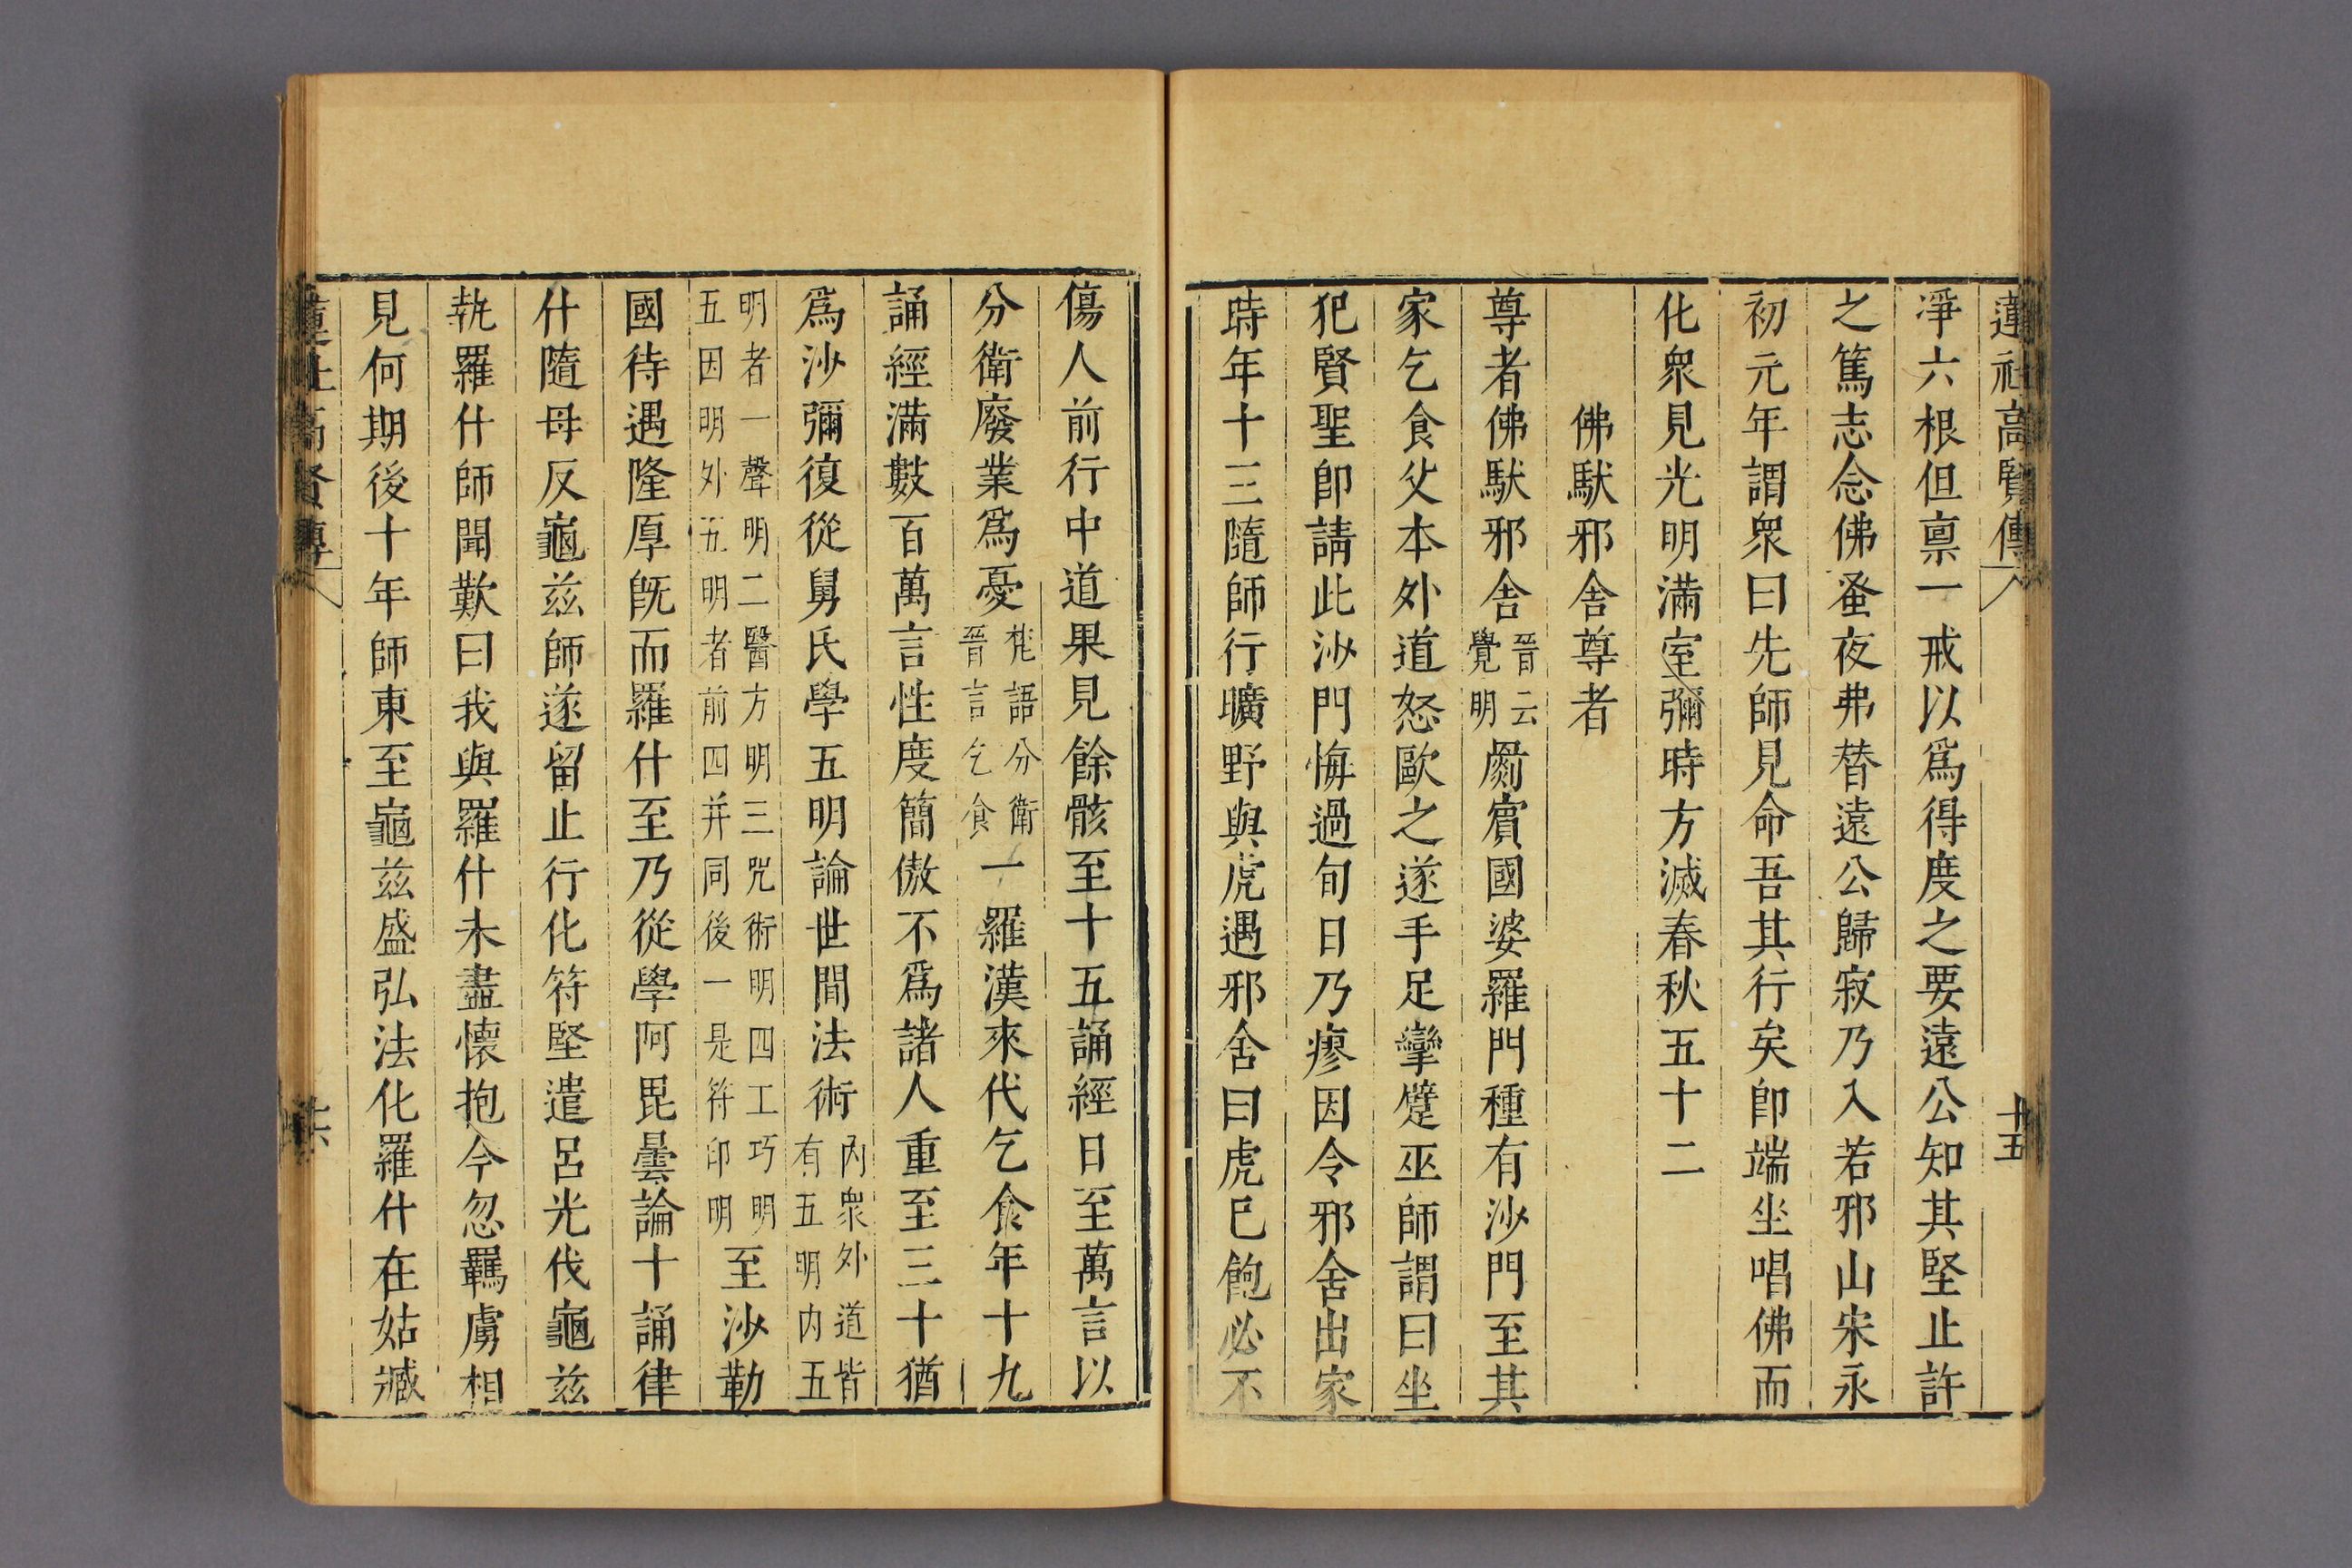 蓮社高賢傳 十五
淨六根但稟一戒以爲得度之要遠公知其堅止許
之篤志念佛蚤夜弗替遠公歸寂乃入若邪山宋永
初元年謂衆曰先師見命吾其行矣卽端坐唱佛而
化衆見光明滿室彌時方滅春秋五十二
佛馱邪舍尊者
尊者佛馱邪舍晉云覺明罽賓國婆羅門種有沙門至其
家乞食父本外道怒歐之遂手足攣躄巫師謂曰坐
犯賢聖卽請此沙門悔過旬日乃瘳因令邪舍出家
時年十三隨師行曠野與虎遇邪舍曰虎巳飽必不
傷人前行中道果見餘骸至十五誦經日至萬言以
分衛廢業爲憂梵語分衛晉言乞食一羅漢來代乞食年十九
誦經滿數百萬言性度簡傲不爲諸人重至三十猶
爲沙彌復從舅氏學五明論世間法術內衆外道皆有五明內五
明者一聲明二醫方明三咒術明四工巧明五因明外五明者前四并同後一是符印明至沙勒
國待遇隆厚旣而羅什至乃從學阿毘曇論十誦律
什隨母反龜茲師遂留止行化符堅遣呂光伐龜茲
執羅什師聞歎曰我與羅什未盡懷抱今忽羈虜相
見何期後十年師東至龜茲盛弘法化羅什在姑臧
蓮社高賢傳